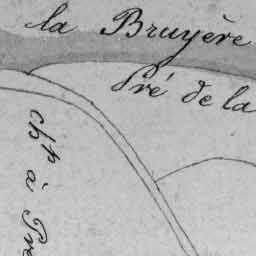 la Bruyère
Pré de la
à Pré